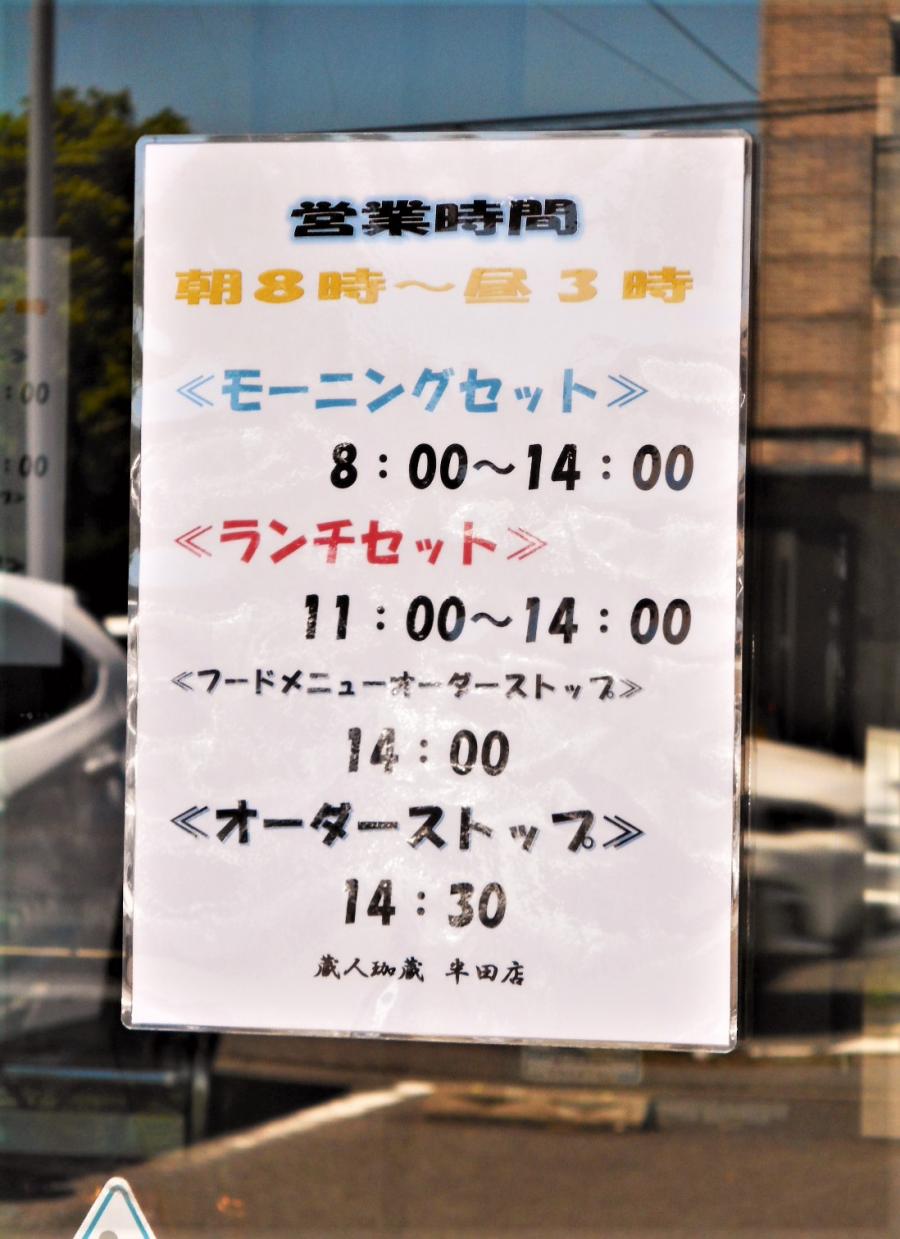 営業時間
朝8時〜昼3時
≪モーニングセット≫
8:00〜14:00
≪ランチセット≫
11:00〜14:00
≪フードメニューオーダーストップ≫
14:00
≪オーダーストップ≫
14:30
蔵人珈蔵 半田店
:00
:00